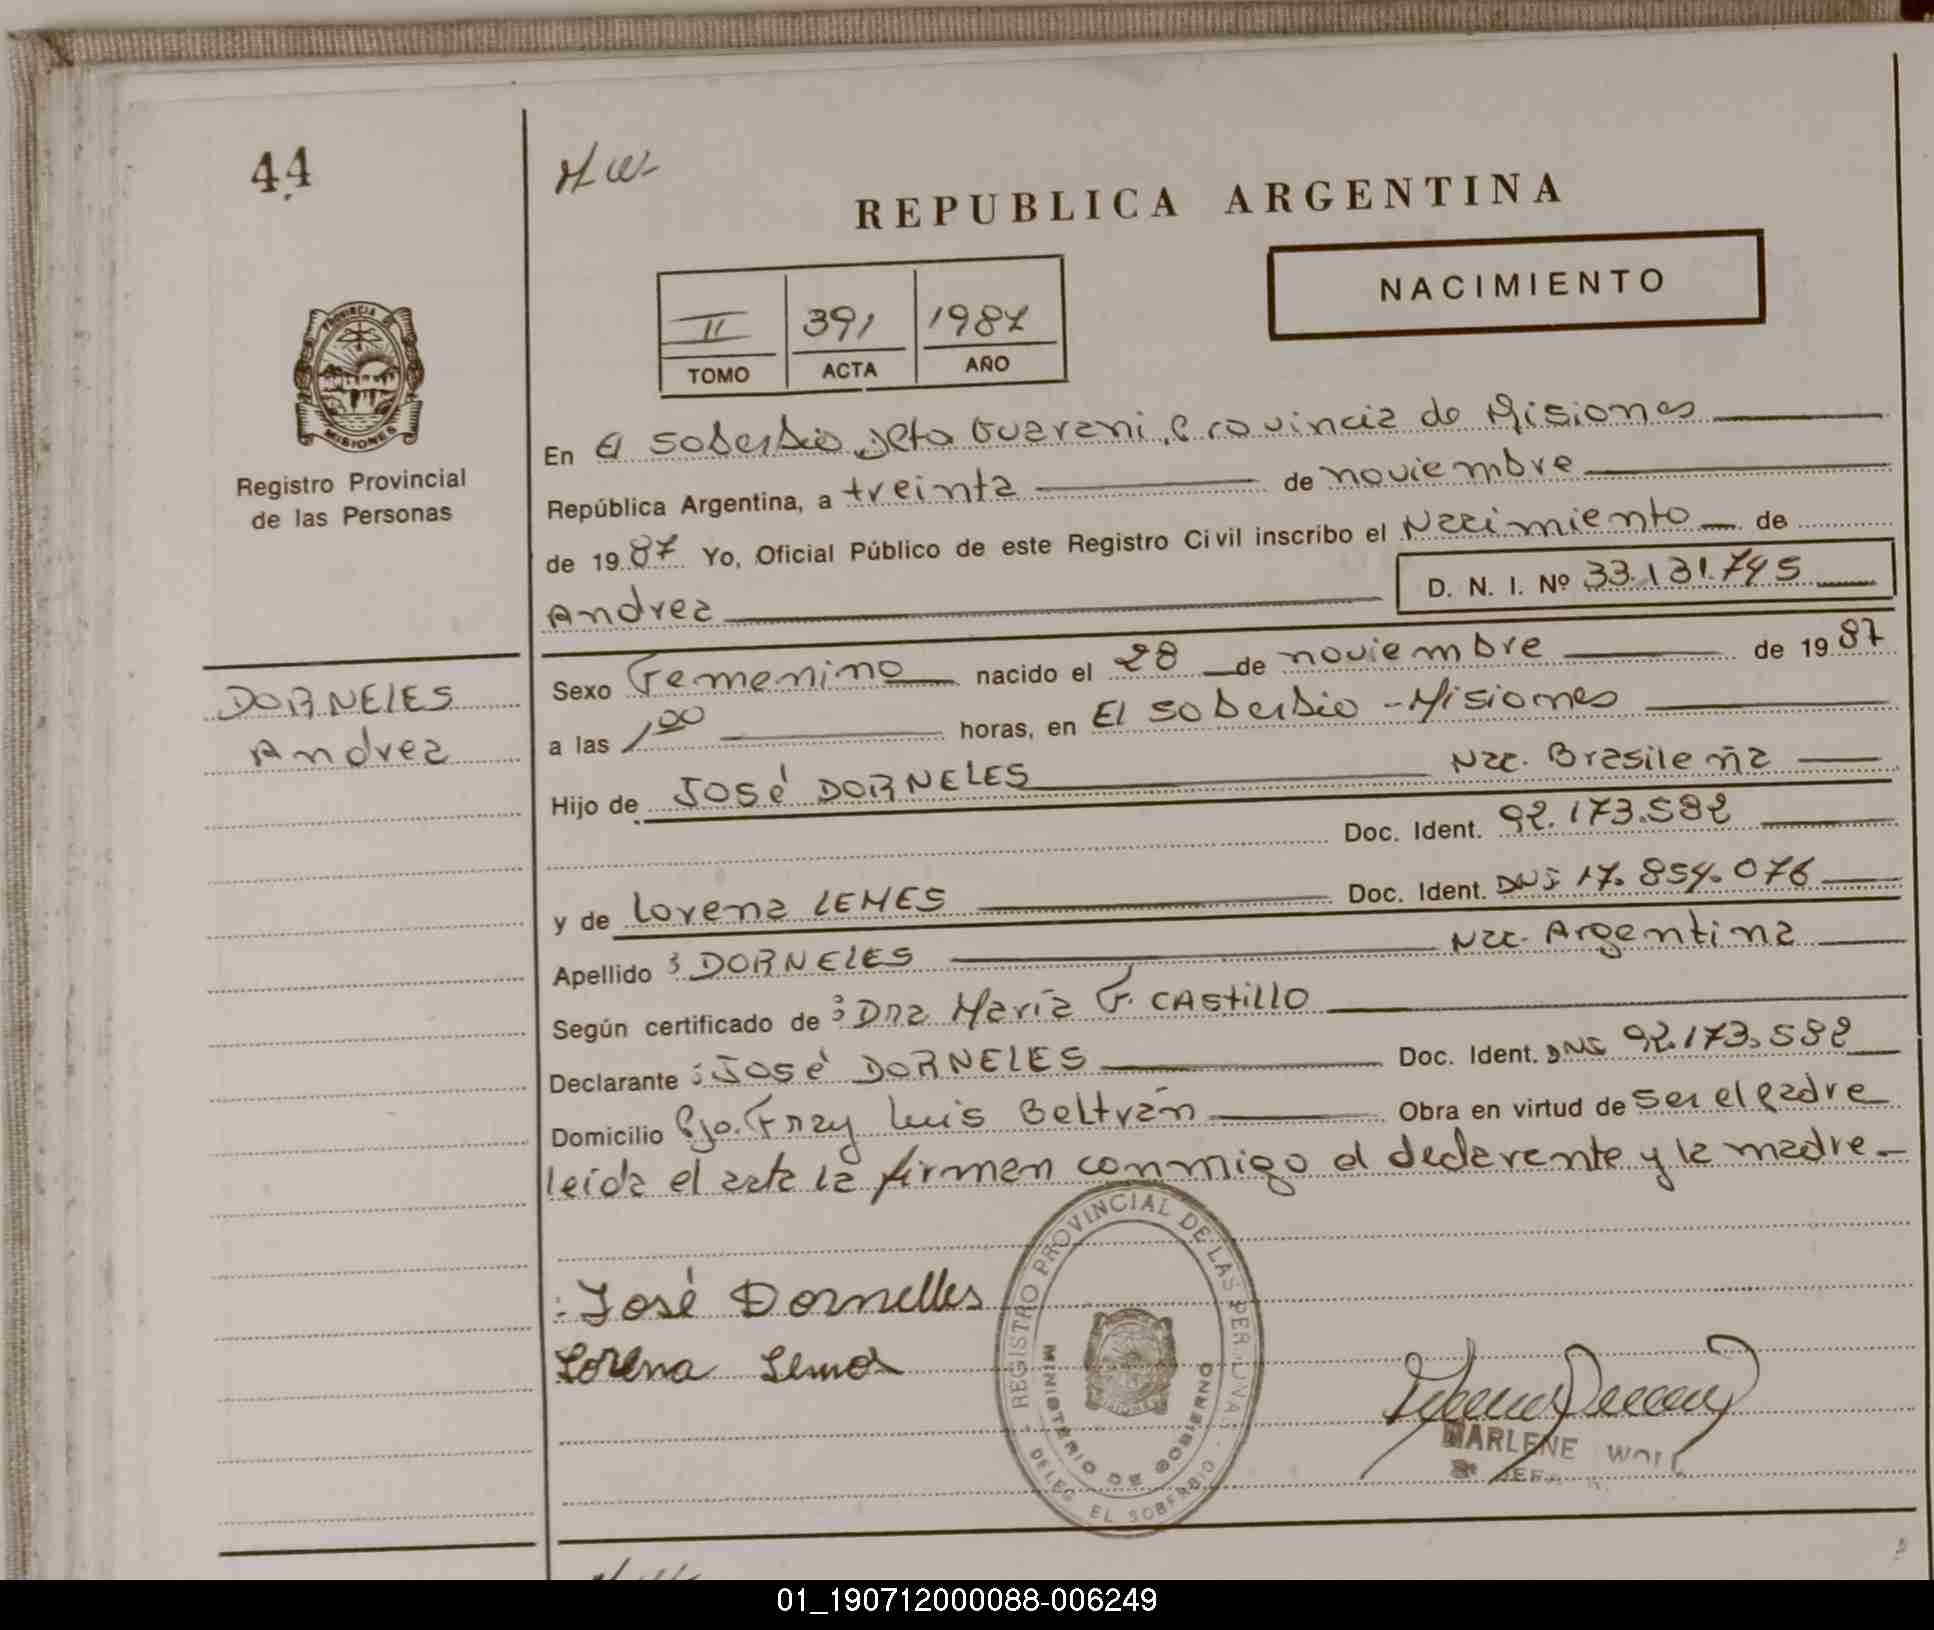 44
REPUBLICA ARGENTINA
NACIMIENTO
II 391 1987
TOMO ACTA AÑO
PROVINCIA DE
MISIONES
Registro Provincial
de las Personas
DORNELES
Andrea
En El Soberbio Dpto Guarani, Provincia de Misiones
República Argentina, a treinta de noviembre
de 1987 Yo, Oficial Público de este Registro Civil inscribo el Nacimiento de
Andrea D. N. I. Nº 33.131.745
Sexo Femenino nacido el 28 de noviembre de 1987
a las 1,00 horas, en El Soberbio - Misiones
Hijo de José DORNELES Nac. Brasileña
Doc. Ident. 92.173.582
y de Lorena LEMES Doc. Ident. DNI 17.854.076
Apellido : DORNELES Nac. Argentina
Según certificado de : Dra María F. CAStiLLO
Declarante : José DORNELES Doc. Ident. DNI 92.173.582
Domicilio Pje. Fray Luis Beltrán Obra en virtud de ser el padre
leída el acta la firman conmigo el declarante y la madre -
José Dornelles
Lorena Lemes
REGISTRO PROVINCIAL DE LAS PERSONAS
MINISTERIO DE GOBIERNO
DELEG. EL SOBERBIO
MARLENE
01_190712000088-006249